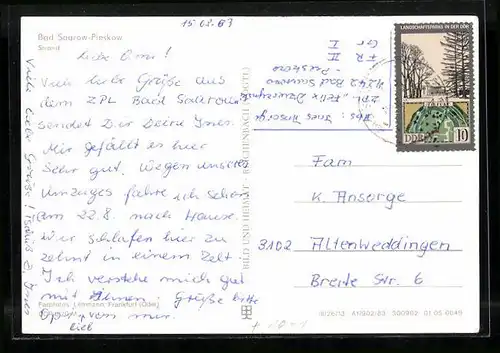 15.08.83
Bad Saarow-Pieskow
Strand
Liebe Omi!
Viele liebe Grüße aus
dem ZPL Bad Saarow
sendet Dir Deine Ines.
Mir gefällt es hier
sehr gut. Wegen unseres
Umzuges fahre ich schon
am 22.8. nach Hause.
Wir schlafen hier zu
zehnt in einem Zelt.
Ich verstehe mich gut
mit ihnen. Grüße bitte
Opi von mir.
lieb
Viele liebe Grüße! Tschüß Ines
Farbfotos: Lehmann, Frankfurt (Oder)
BILD UND HEIMAT · REICHENBACH (VOGTL)
Abs.: Ines Ansorge
ZPL "Felix
1242 Bad Saarow
-Pieskow
FR II
Gr
LANDSCHAFTSPARKS IN DER DDR
DDR 10
Fam
K. Ansorge
3102 Altenweddingen
Breite Str. 6
01 05 0649